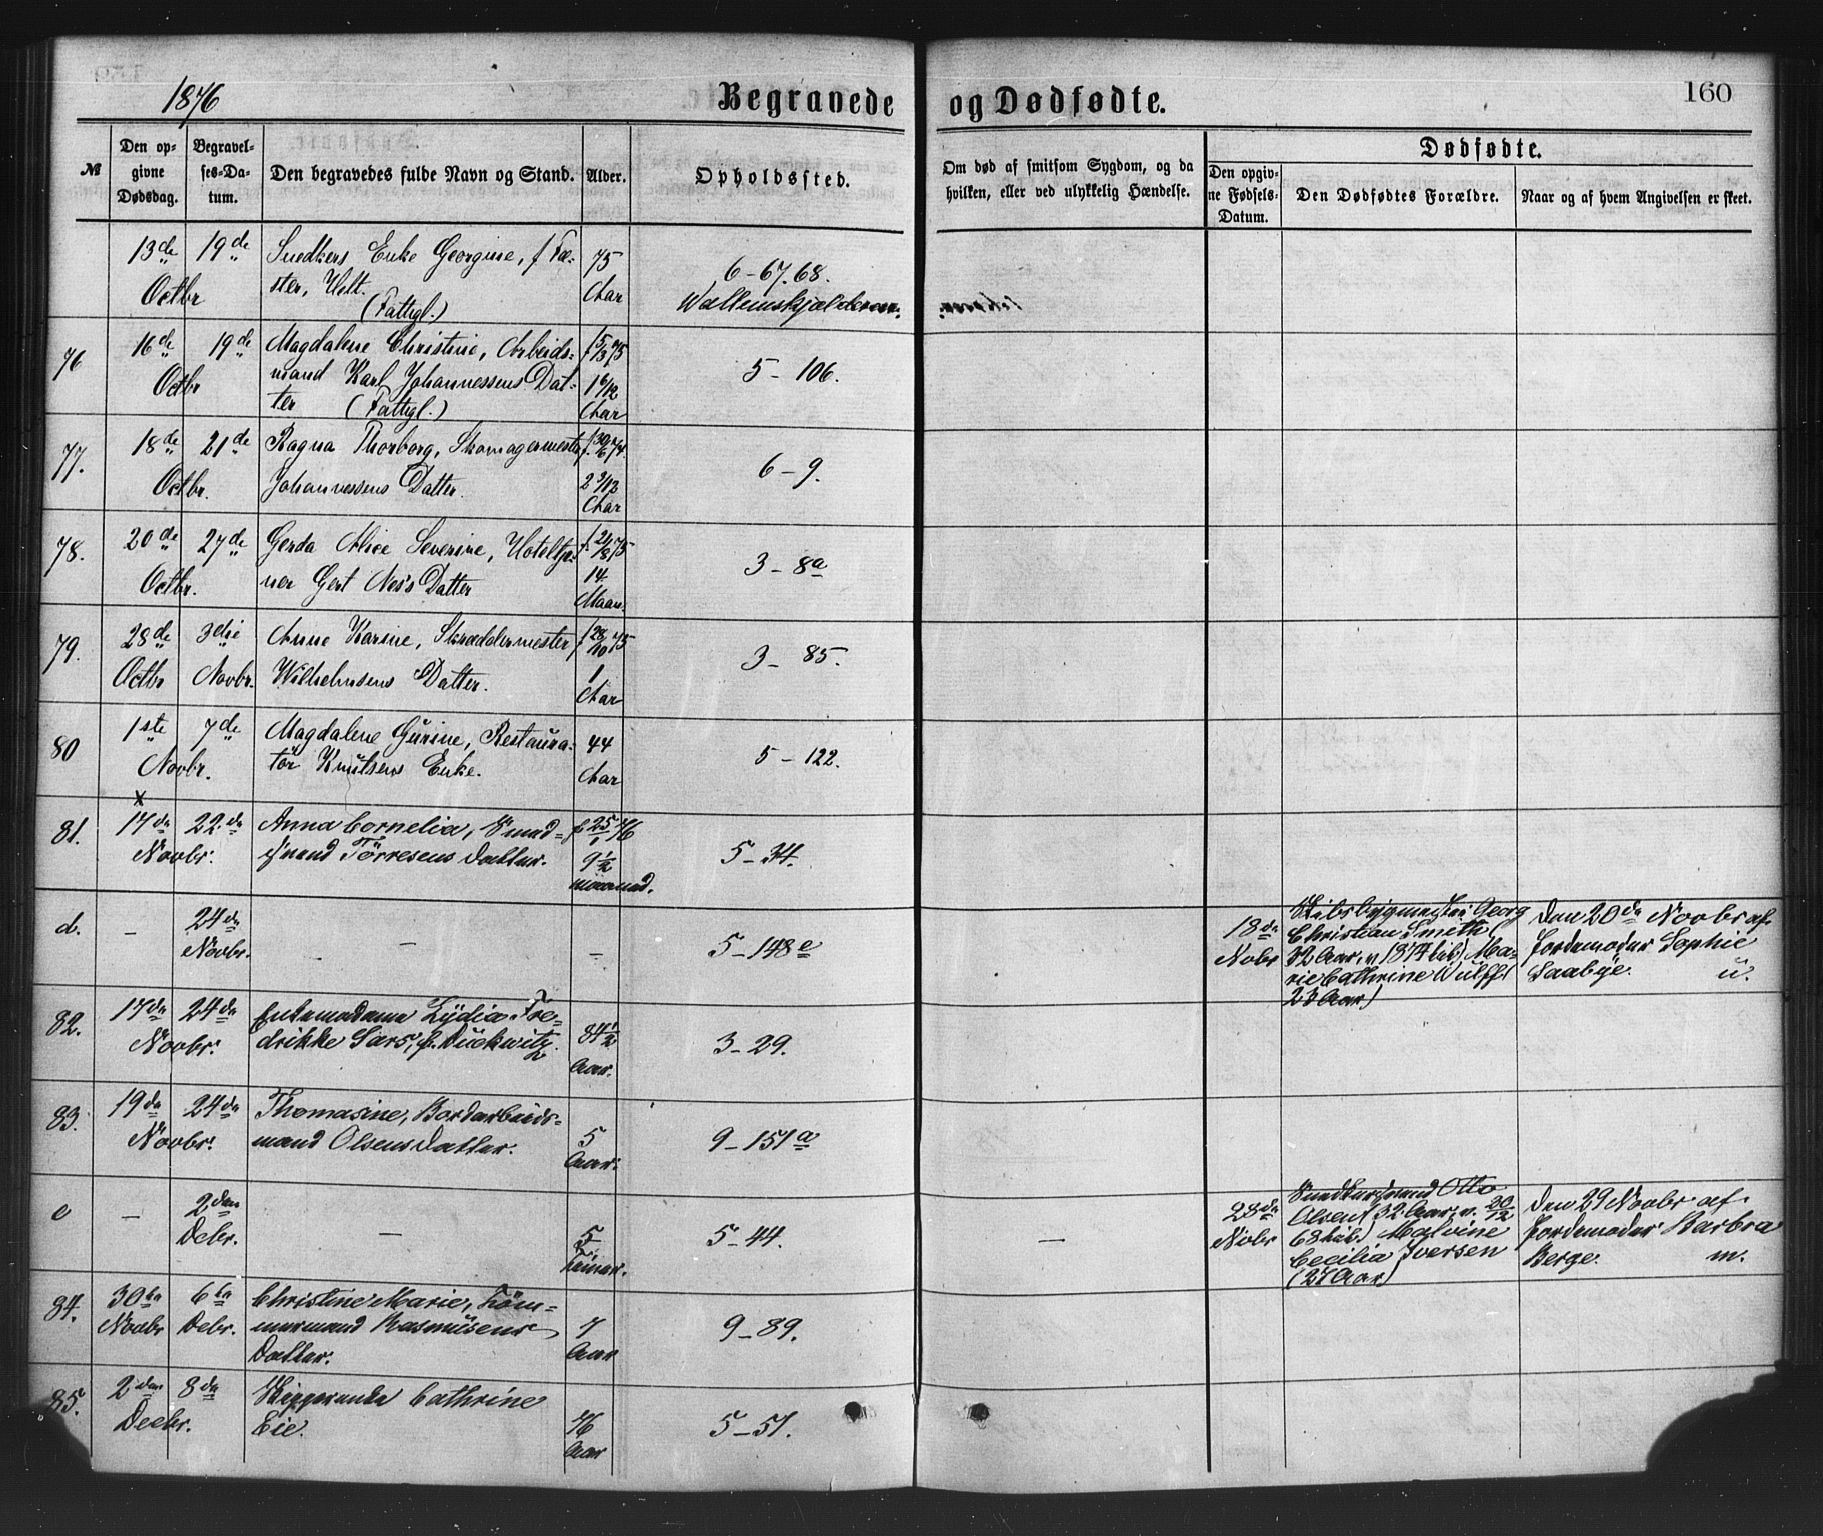 1876
Begravede og Dødfødte.
160
№
Den opgivne Dødsdag.
Begravelses-Datum.
Den begravedes fulde Navn og Stand.
Alder.
Opholdssted.
Om død af smitsom Sygdom, og da hvilken, eller ved ulykkelig Hændelse.
Dødfødte.
Den opgivne Fødsels-Datum.
Den Dødfødtes Forældre.
Naar og af hvem Angivelsen er skeet.
13de Octbr 19de Snedkers Enke Georgine, f Fæ-
ster, Uelt.
(Fattigl.)
75 Aar
6-67.68.
76 16de Octbr 19de Magdalene Christine, Arbeids-
mand Karl Johannessens Dat-
ter (Fattigl.)
f 5/3 75
1 6/12 Aar
5-106.
77. 18de Octbr. 21de Ragna Thorborg, Skomagermester
Johannessens Datter.
f. 30/6 74.
2 3/12 Aar
6-9.
78. 20de Octbr. 27de Gerda Alice Severine, Hoteltje-
ner Gert Ness Datter
f. 21/8 75
14 Maan.
3-8a
79. 28de Octbr 3die Novbr. Anne Karine, Skræddermester
Wilhelmsens Datter.
f 28/10 75
1 Aar
3-85.
80 1ste Novbr. 7de Magdalene Gurine, Restaura-
tør Knutsens Enke.
44 Aar
5-122.
x
81. 17de Novbr. 22.de Anna Cornelia, Smed-
svend Törresens Datter.
f 25/1 76
9 1/2 maaned.
5-34.
d. - 24de Novbr. - - 5-148e
18de Nobr
Skibsbygmester Georg
Christian Smith (
32 Aar, v 1874 hib) Ma-
rie Cathrine Wulff (
23 Aar)
Den 20de Novbr af
Jordemoder Sophie
Saabye. u.
82. 17de Novbr. 24de Enkemadame Lydia Fre-
drikke Sars, f. Duckwitz.
84 1/2 Aar.
3-29.
83. 19de Novbr. 24de Thomasine, Bordarbeids-
mand Olsens Datter.
5 Aar.
9-151a
e - 2den Debr. - 5 Timer. 5-44. -
28de Nobr
Snedkersvend Otto
Olsen (32 Aar, v. 20/12
68 hib.) Malvine
Cecilia Iversen
(27 Aar)
Den 29 Novbr af
Jordemoder Barbra
Berge. m.
84. 30te Novbr 6te Debr. Christine Marie, Töm-
mermand Rasmusens
Datter.
7 Aar
9-89.
85. 2den Decbr. 8de Skipperenke Cathrine
Eie.
76 Aar
5-51.